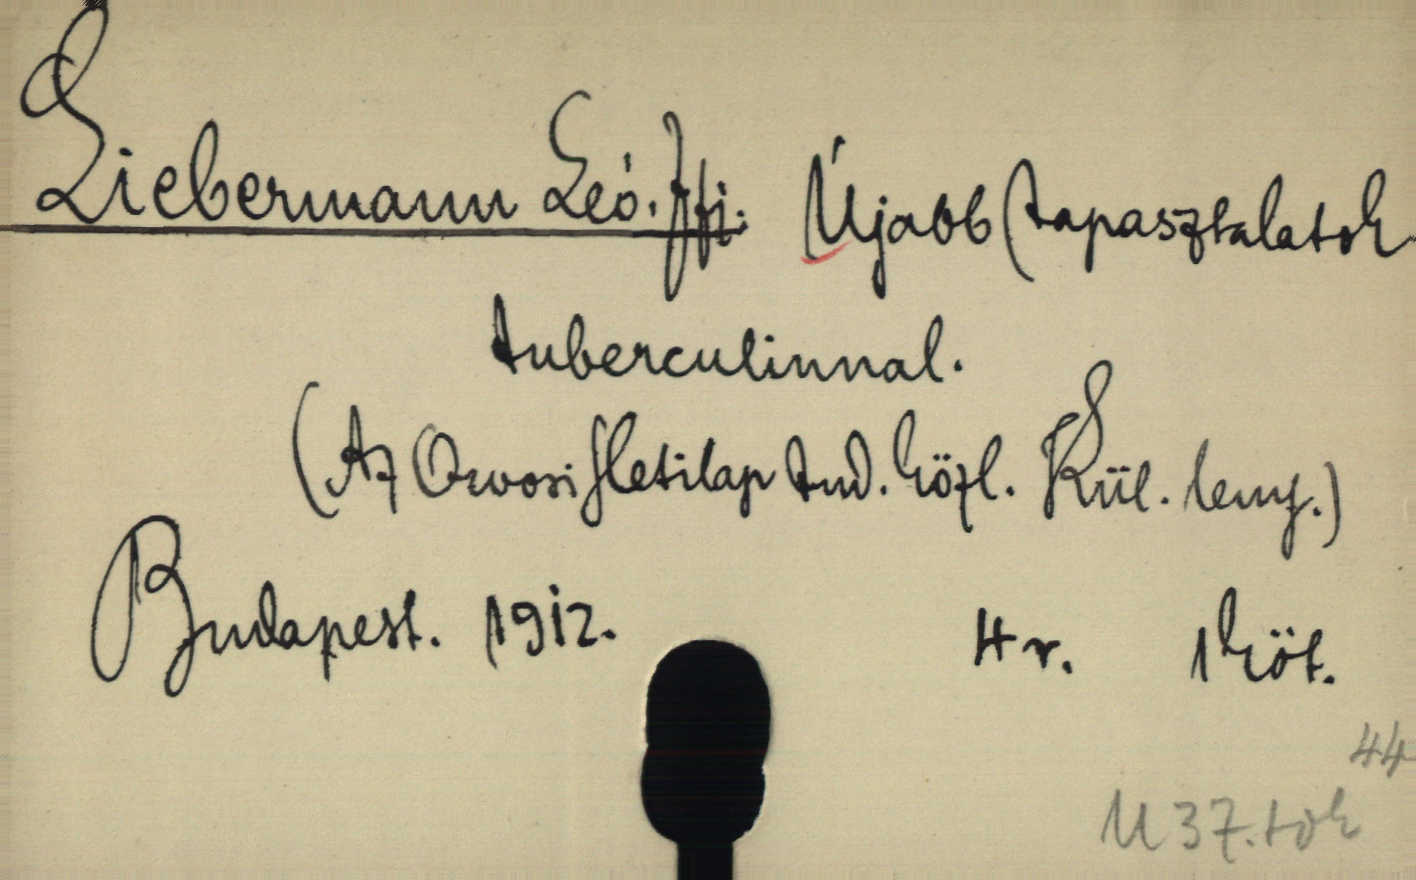 Liebermann Leó. Ifj. Újabb tapasztalatok
tuberculinnal.
(Az Orvosi Hetilap tud. közl. Kül. leny.)
Budapest. 1912. 4r. 1 köt.
44
U 37. tok